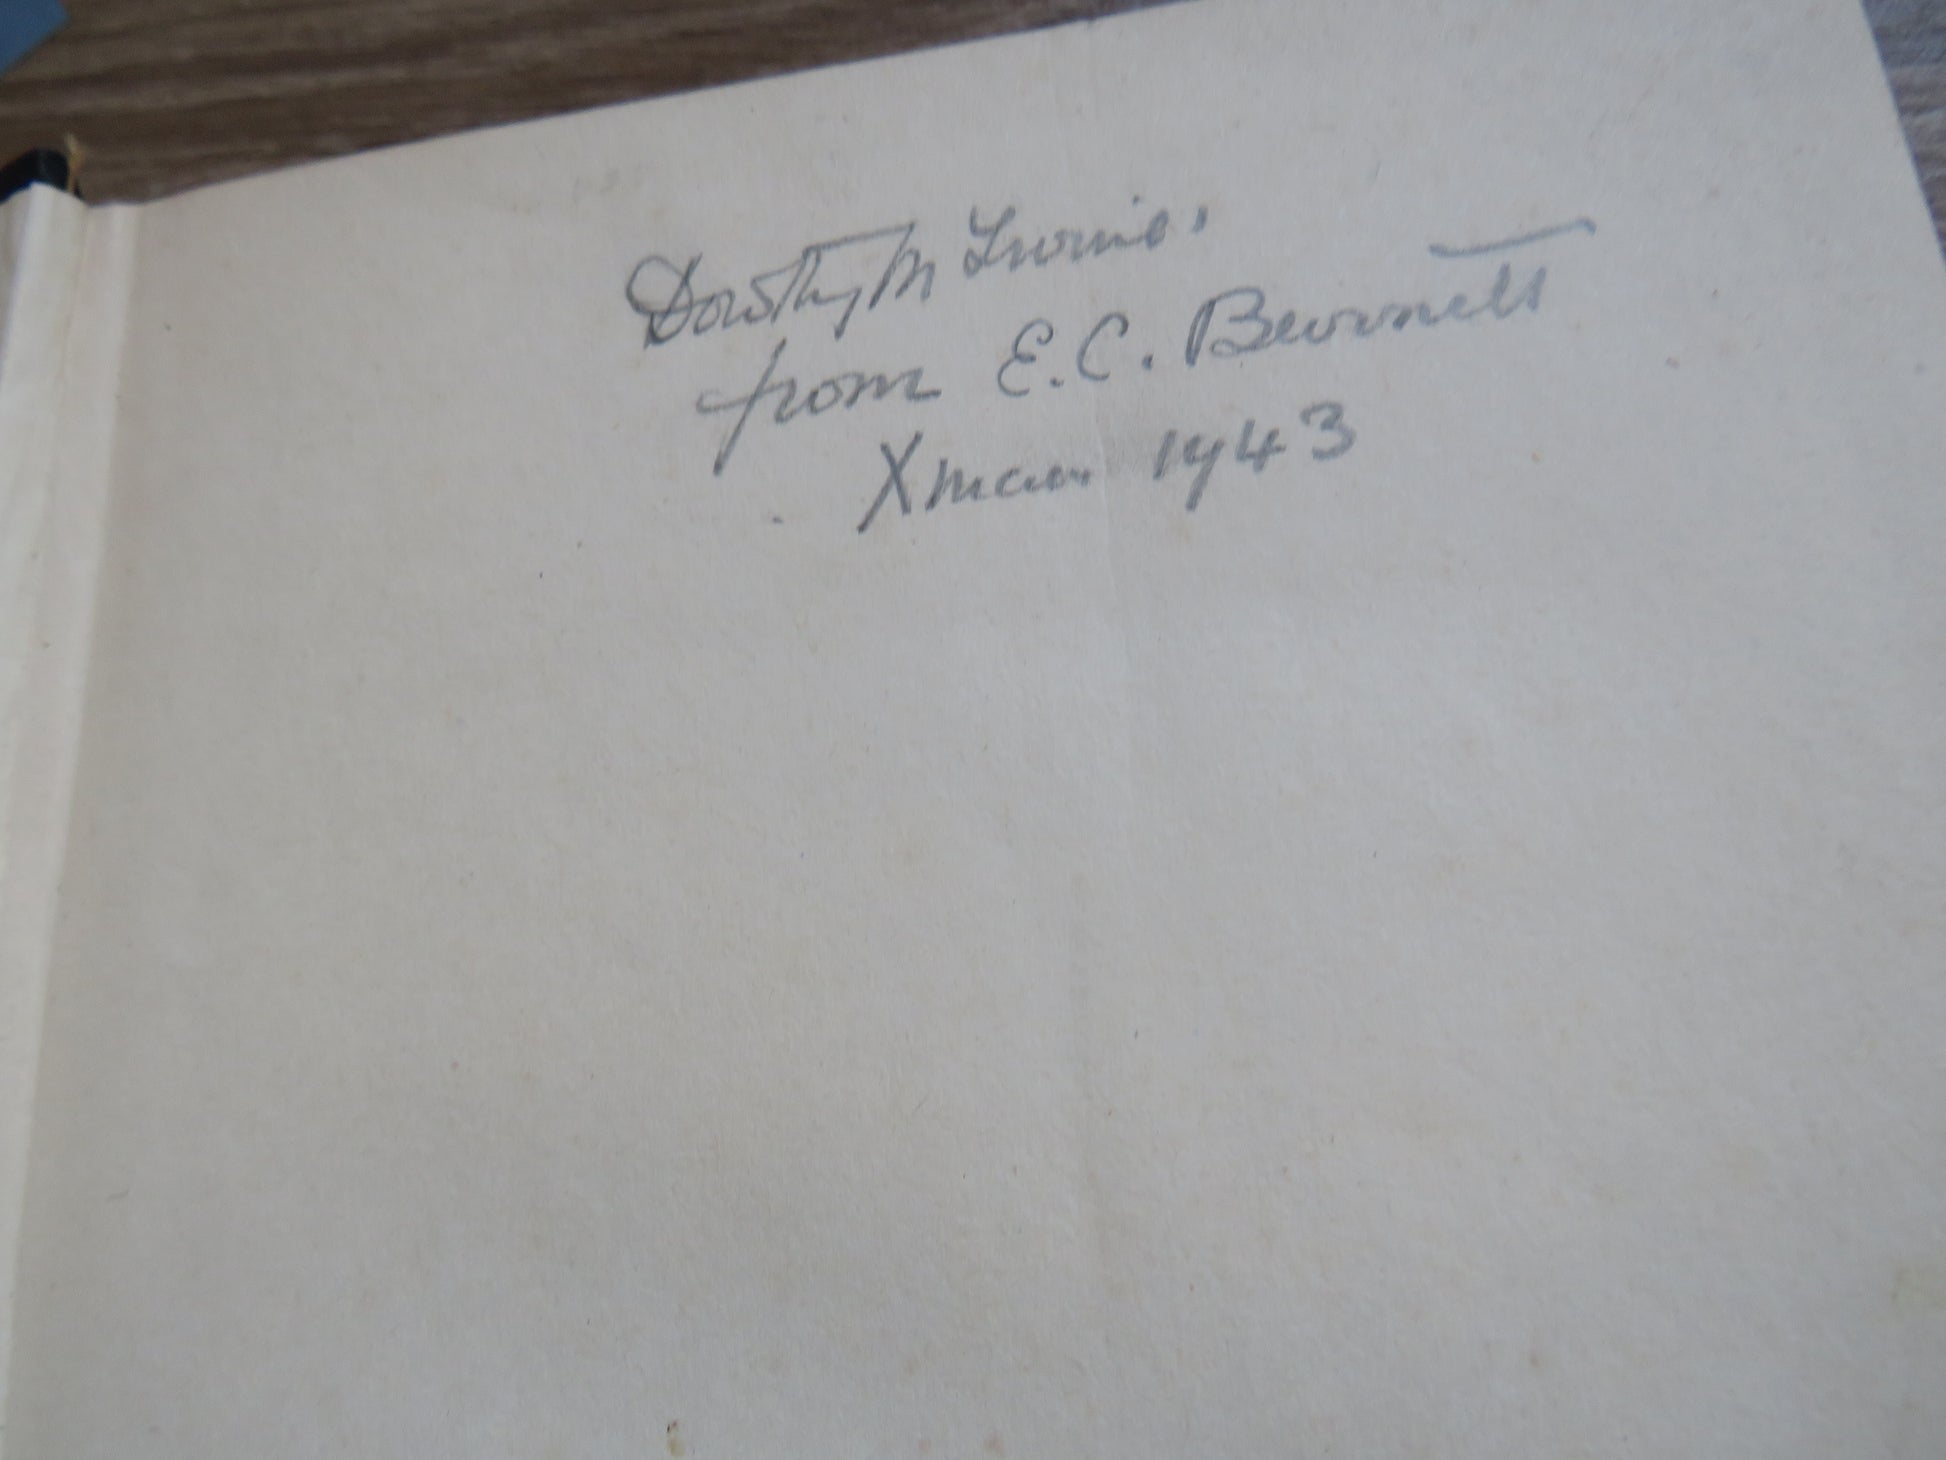 Dorothy M Irvine.
from E. C. Bennett
Xmas 1943